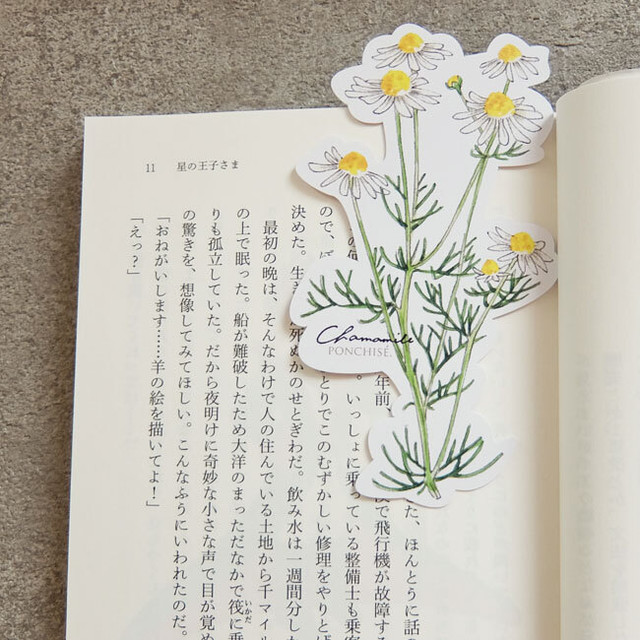 11 星の王子さま
Chamomile
PONCHISÉ.
た、ほんとうに話
年前、 で飛行機が故障する
。いっしょに乗っている整備士も乗客
ので、 とりでこのむずかしい修理をやりとげ
決めた。生 死ぬかのせとぎわだ。飲み水は一週間分しか
最初の晩は、そんなわけで人の住んでいる土地から千マイル
の上で眠った。船が難破したため大洋のまっただなかで筏いかだに乗
りも孤立していた。だから夜明けに奇妙な小さな声で目が覚め
の驚きを、想像してみてほしい。こんなふうにいわれたのだ。
「おねがいします……羊の絵を描いてよ！」
「えっ？」